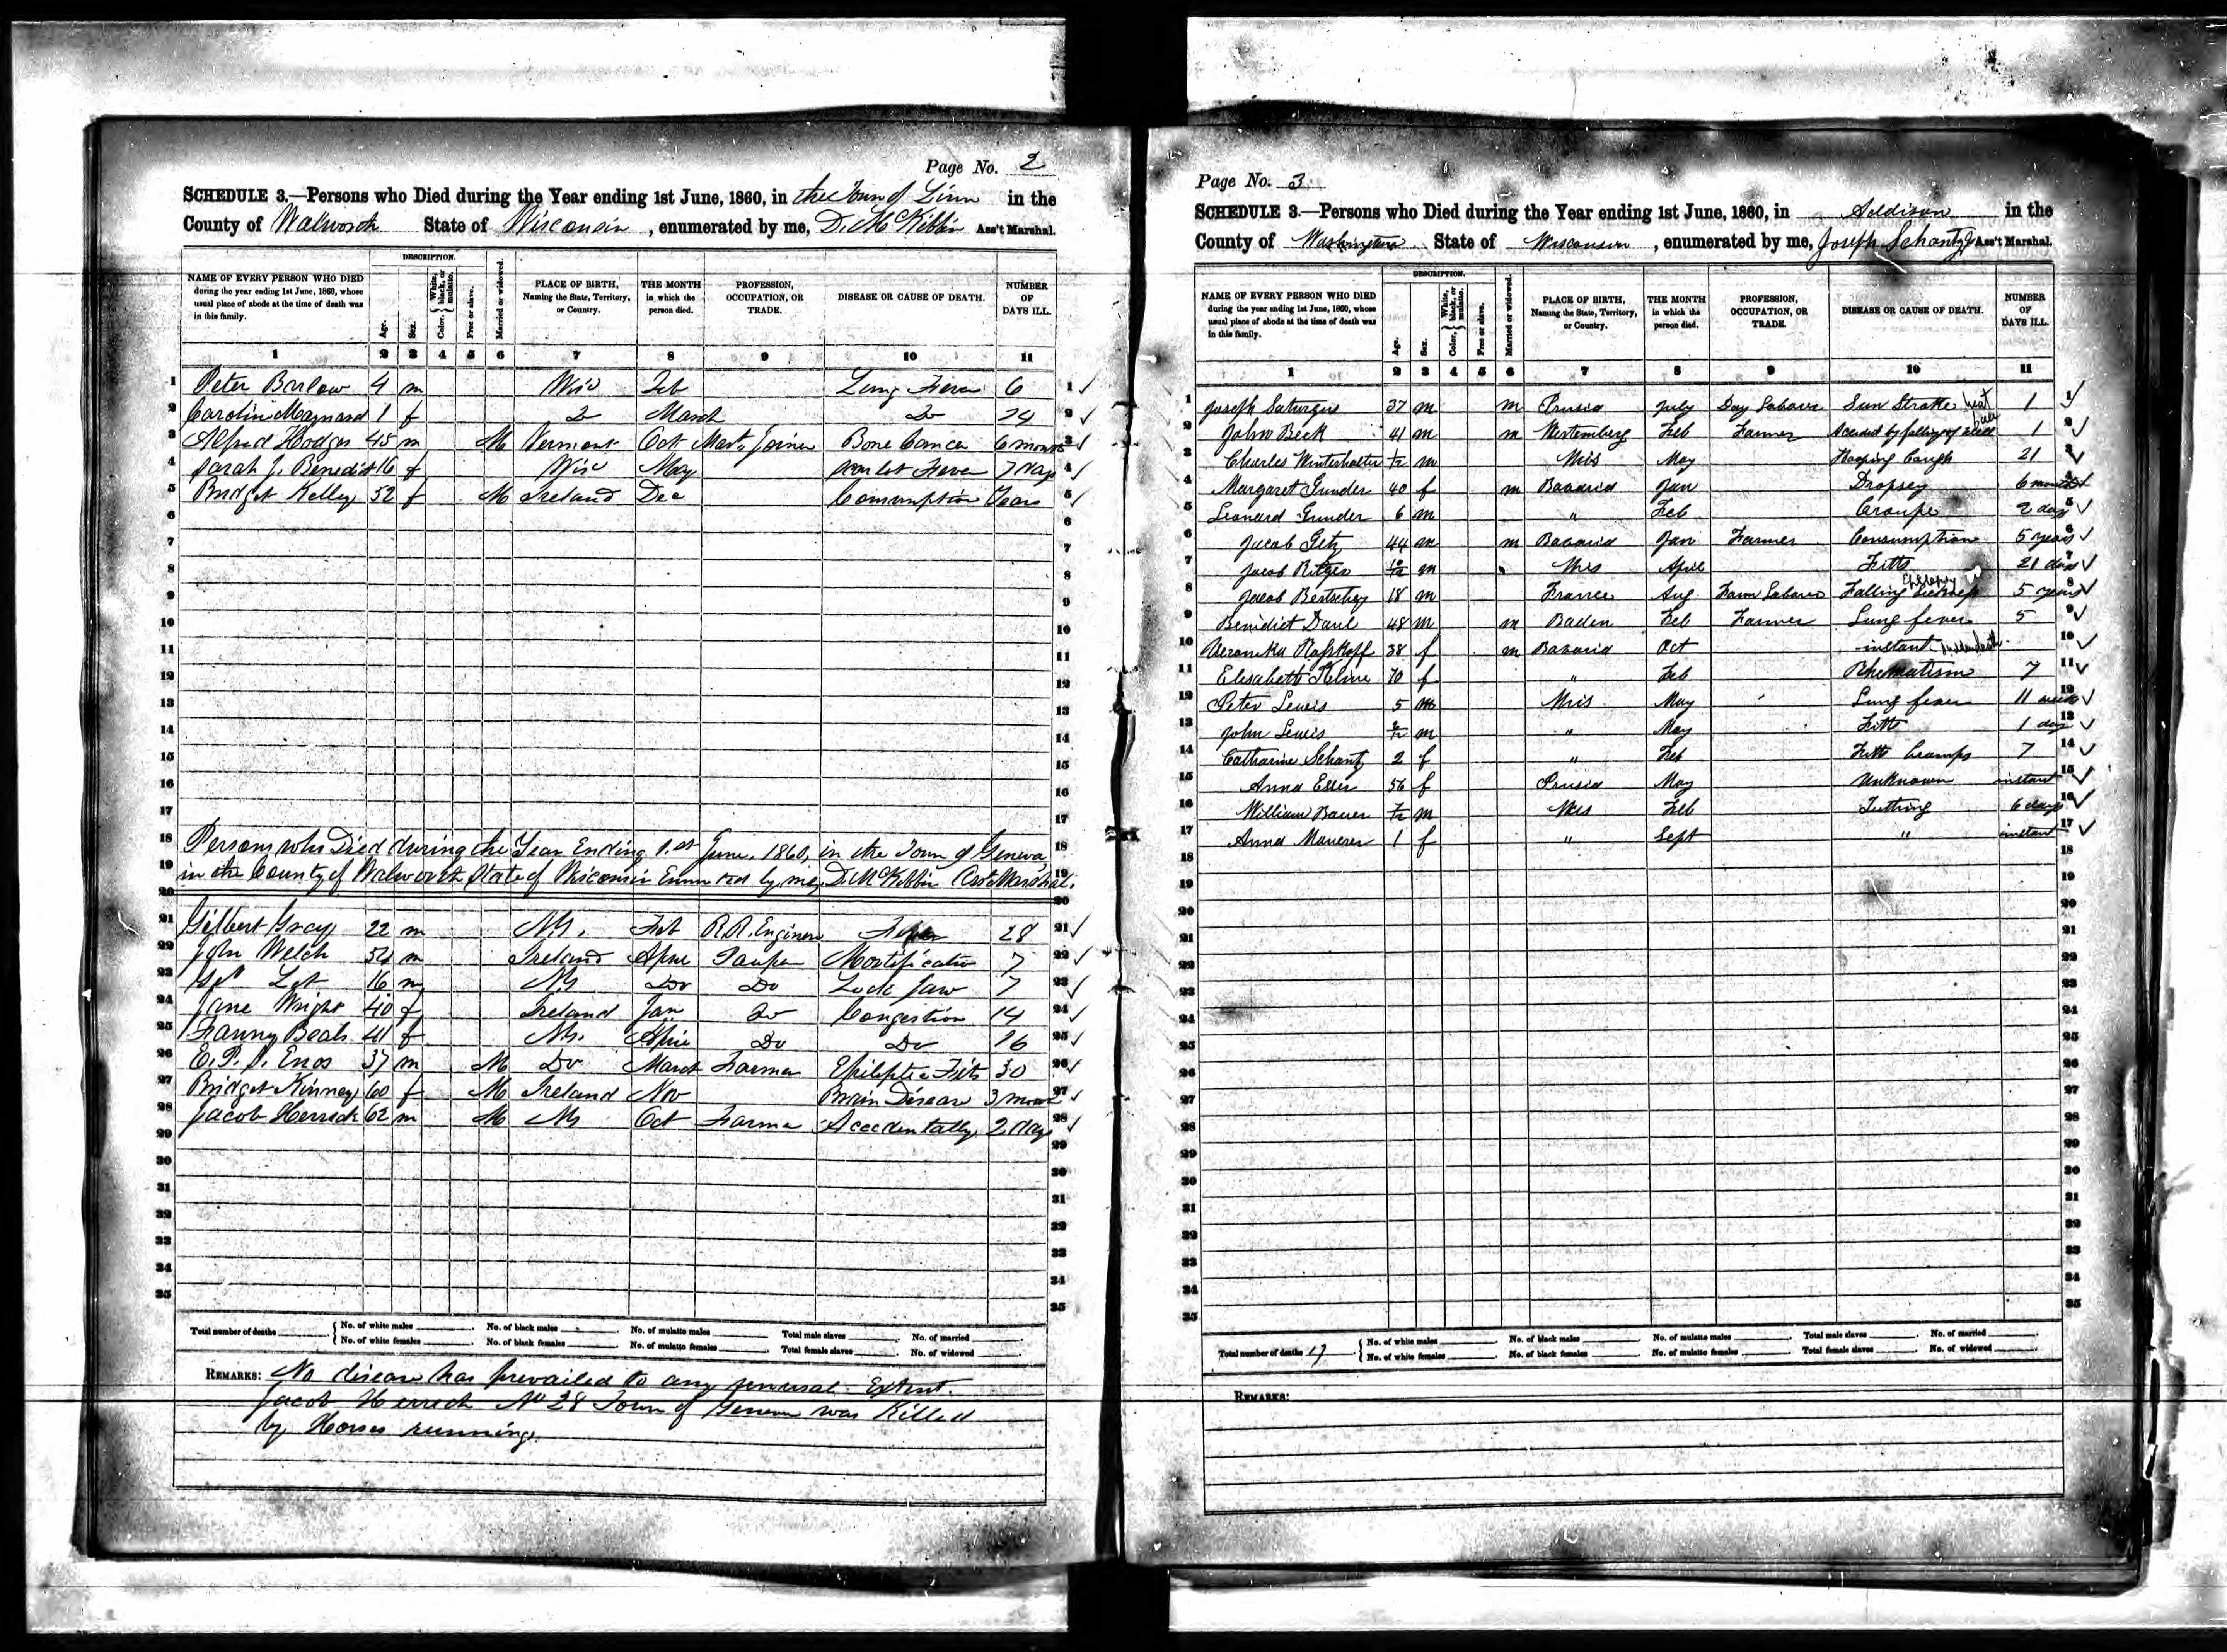 Page No. 2
SCHEDULE 3.—Persons who Died during the Year ending 1st June, 1860, in the Town of Linn in the
County of Walworth State of Wisconsin, enumerated by me, D. McKibbin Ass't Marshal.
DESCRIPTION.
NAME OF EVERY PERSON WHO DIED during the year ending 1st June, 1860, whose usual place of abode at the time of death was in this family. Age. Sex. Color, { White, black, or mulatto. Free or slave. Married or widowed. PLACE OF BIRTH, Naming the State, Territory, or Country. THE MONTH in which the person died. PROFESSION, OCCUPATION, OR TRADE. DISEASE OR CAUSE OF DEATH. NUMBER OF DAYS ILL.
1 2 3 4 5 6 7 8 9 10 11
1 Peter Barlow 4 m Wis Feb Lung Fever 6 1 ✓
2 Carolin Maynard 1 f Do March Do 24 2 ✓
3 Alfred Hodges 45 m M Vermont Oct Mast. Joiner Bone Cancer 6 months 3 ✓
4 Sarah J. Benedict 16 f Wis May Scarlet Fever 7 days 4 ✓
5 Bridget Kelley 52 f M Ireland Dec Consumption Years 5 ✓
6 6
7 7
8 8
9 9
10 10
11 11
12 12
13 13
14 14
15 15
16 16
17 17
18 Persons who Died during the Year Ending 1.st June, 1860, in the Town of Geneva, 18
19 in the County of Walworth State of Wisconsin Enumrted by me, D. McKibbin Asst Marshal. 19
20 20
21 Gilbert Gray 22 m N.Y. Feb R.R. Engineer Fever 28 21 ✓
22 John Welch m Ireland April Pauper Mortification 7 22 ✓
23 16 m NY Do Do Lock Jaw 7 23 ✓
24 Jane Wright 40 f Ireland Jan Do Congestion 14 24 ✓
25 Fanny Beals 41 f N.Y. April Do Do 16 25 ✓
26 E. P. Enos 37 m M Do March Farmer Epileptic Fits 30 26 ✓
27 Bridget Kinney 60 f M Ireland Nov Brain Disease 3 months 27 ✓
28 Jacob Herrick 62 m M NY Oct Farmer Accedentally 2 days 28 ✓
29 29
30 30
31 31
32 32
33 33
34 34
35 35
Total number of deaths { No. of white males No. of black males No. of mulatto males Total male slaves No. of married
No. of white females No. of black females No. of mulatto females Total female slaves No. of widowed
REMARKS: No disease has prevailed to any general Extent.
Jacob Herrick No 28 Town of Geneva was Killed
by Horses running.
Page No. 3
SCHEDULE 3.—Persons who Died during the Year ending 1st June, 1860, in Addison in the
County of Washington State of Wisconsin, enumerated by me, Joseph Schantz Ass't Marshal.
DESCRIPTION.
NAME OF EVERY PERSON WHO DIED during the year ending 1st June, 1860, whose usual place of abode at the time of death was in this family. Age. Sex. Color, { White, black, or mulatto. Free or slave. Married or widowed. PLACE OF BIRTH, Naming the State, Territory, or Country. THE MONTH in which the person died. PROFESSION, OCCUPATION, OR TRADE. DISEASE OR CAUSE OF DEATH. NUMBER OF DAYS ILL.
1 2 3 4 5 6 7 8 9 10 11
1 Joseph Saturgus 37 m m Prusia July Day Laborer Sun Stroke heat 1 1 ✓
2 John Beck 41 m m Wertemberg Feb Farmer Accedent by falling of tree 1 2 ✓
3 Charles Winterhalter 1/12 m Wis May Hooping Cough 21 3 ✓
4 Margaret Gunder 40 f m Bavaria Jan Dropsey 6 months 4 ✓
5 Leonard Gunder 6 m " Feb Croupe 2 days 5
6 Jacob Getz 44 m m Bavaria Jan Farmer Consumption 5 years 6 ✓
7 Jacob Ritger 10/12 m Wis April Fitts 21 days 7 ✓
8 Jacob Bertschey 18 m France Aug Farm Laborer Falling Sickness Epilepsy 5 years 8 ✓
9 Benedict Daul 48 m m Baden Feb Farmer Lung fever 5 9 ✓
10 Veronika Rosskopf 38 f m Bavaria Oct instant sudden death 10 ✓
11 Elisabeth Kelme 70 f " Feb Rhematism 7 11 ✓
12 Peter Lewis 5 m Wis May Lung fever 11 weeks 12 ✓
13 John Lewis m " May Fitts 1 day 13 ✓
14 Catharine Schantz 2 f " Feb Fitts Cramps 7 14 ✓
15 Anna Esser 56 f Prusia May Unknown instant 15 ✓
16 William Bauer m Wis Feb Teething 6 days 16 ✓
17 Anna Maurer 1 f " Sept " instant 17 ✓
18 18
19 19
20 20
21 21
22 22
23 23
24 24
25 25
26 26
27 27
28 28
29 29
30 30
31 31
32 32
33 33
34 34
35 35
Total number of deaths 17 { No. of white males No. of black males No. of mulatto males Total male slaves No. of married
No. of white females No. of black females No. of mulatto females Total female slaves No. of widowed
REMARKS: